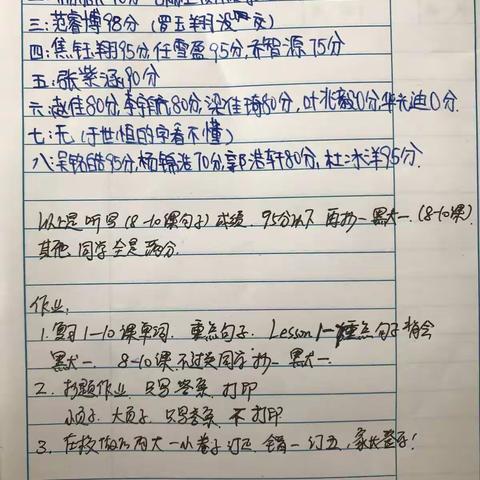 三:范睿博98分 (罗玉翔没交)
四:焦钰翔95分,任雪盈95分,智源75分
五:张荣涵90分
六:赵佳80分,李宇航80分,梁佳琦80分,叶兆毅0分,华天迪0分.
七:无.(于世恒的字看不懂)
八:吴铭皓95分,杨锦浩70分,郭浩轩80分,杜冰洋95分.
以上是听写(8-10课句子)成绩. 95分以下 再抄一默一.(8-10课)
其他 同学全是满分.
作业:
1. 复习1-10课单词. 重点句子. Lesson 1- 重点句子 抄会
默一. 8-10课不过关同学抄一 默一.
2. 抄题作业 只写答案 打印
小页子. 大页子. 只写答案 不打印
3. 在校做的两大一小卷子 订正 错一 订五,家长签字!